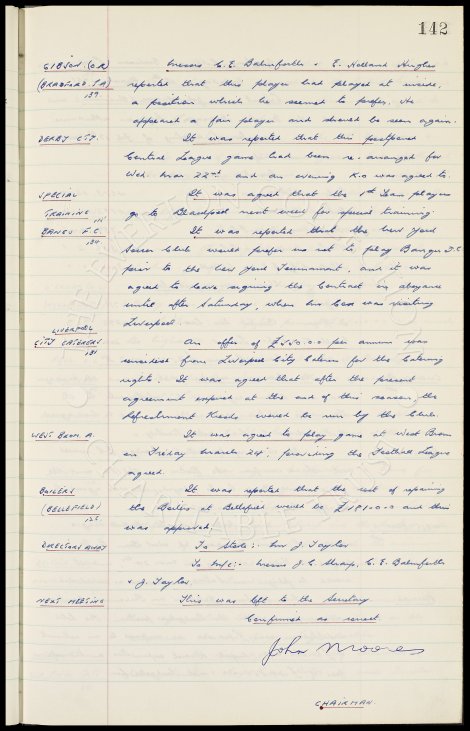 142
GIBSON (O.R) Messrs C. E. Balmforth & E. Holland Hughes
(BRADFORD P.A) reported that this player had played at inside,
139 a position which he seemed to prefer. He
appeared a fair player and should be seen again.
DERBY CTY. It was reported that this postponed
Central League game had been re-arranged for
Wed. Mar 22nd and an evening K.O was agreed to.
SPECIAL It was agreed that the 1st Team players
TRAINING go to Blackpool next week for special training.
BANGU F.C. It was reported that the New York
134 Soccer Club would prefer us not to play Bangu F.C
prior to the New York Tournament, and it was
agreed to leave signing the Contract in abeyance
until after Saturday, when Mr Cox was visiting
Liverpool.
LIVERPOOL
CITY CATERERS An offer of £550.0.0 per annum was
131 received from Liverpool City Caterers for the Catering
rights. It was agreed that after the present
agreement expired at the end of this season, the
Refreshment Kiosks would be run by the Club.
WEST BROM. A. It was agreed to play game at West Brom
on Friday March 24th, providing the Football League
agreed.
BOILERS It was reported that the cost of repairing
(BELLEFIELD) the Boilers at Bellefield would be and this
125 was approved.
DIRECTORS AWAY To Stoke:- Mr J. Taylor
To M/C:- Messrs J. C. Sharp, C. E. Balmforth
& J. Taylor
NEXT MEETING This was left to the Secretary
Confirmed as correct
John Moores
CHAIRMAN.
THE EVERTON COLLECTION
CHARITABLE TRUST